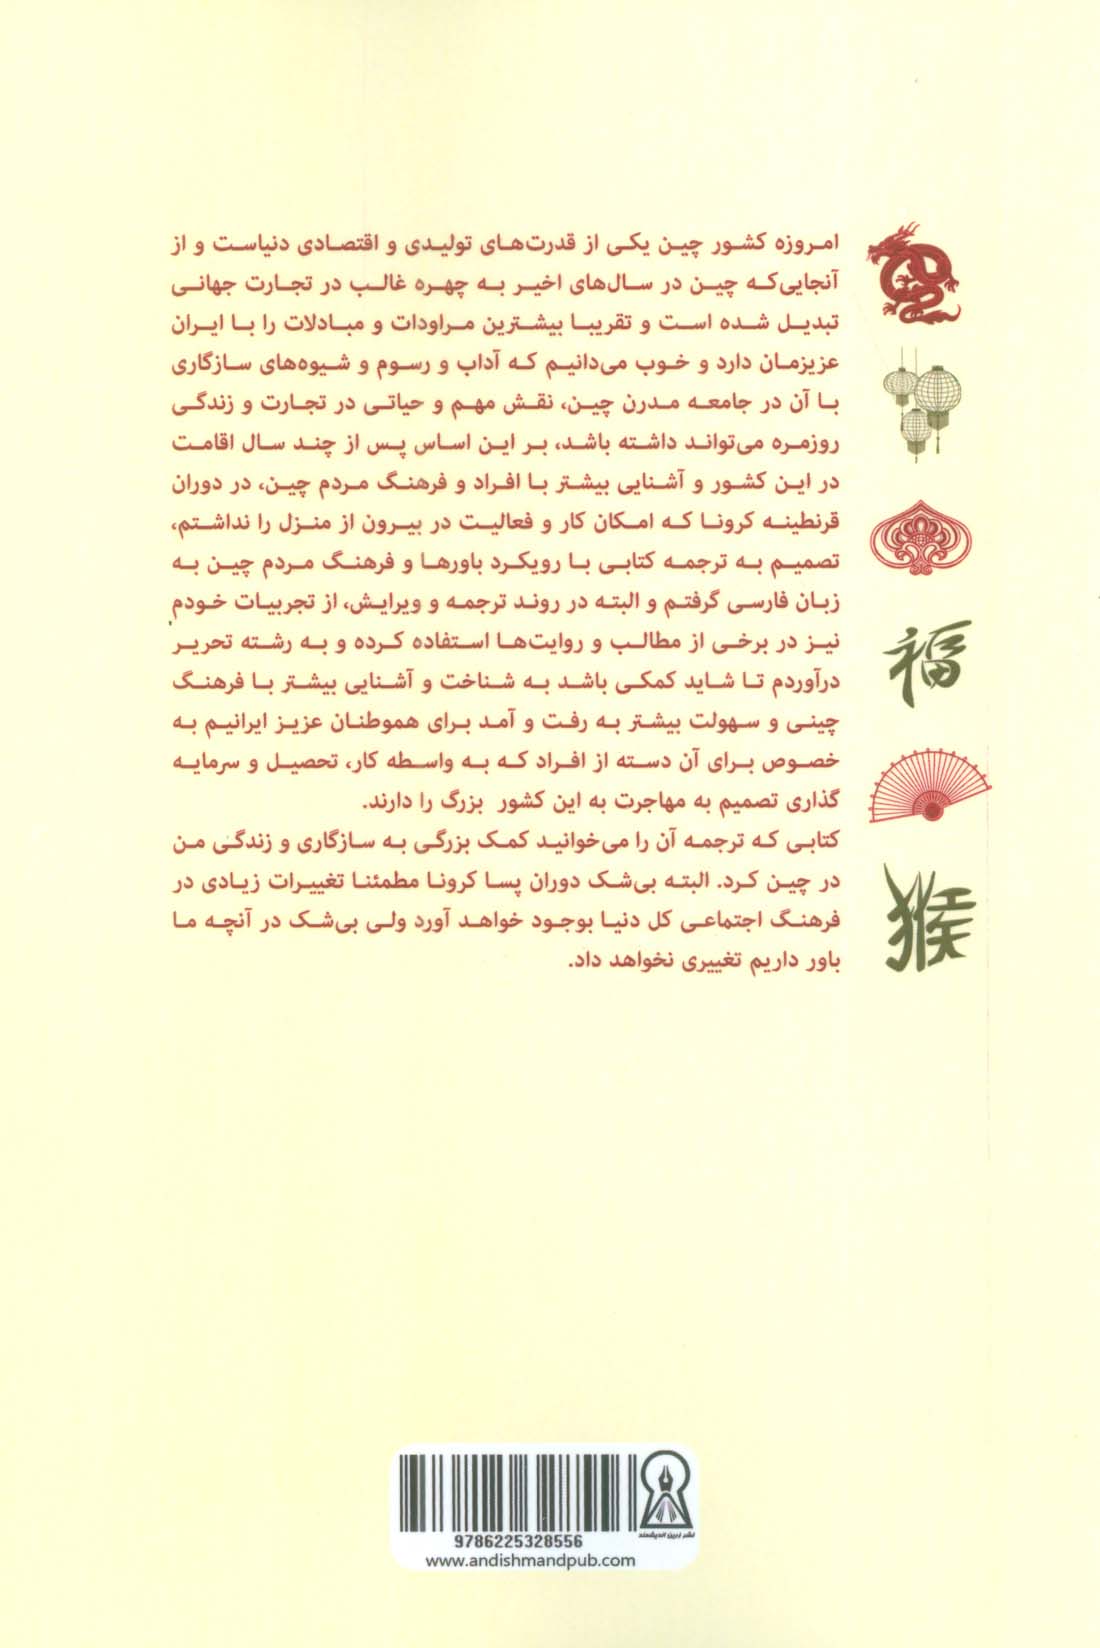 امروزه کشور چین یکی از قدرت‌های تولیدی و اقتصادی دنیاست و از
آنجایی‌که چین در سال‌های اخیر به چهره غالب در تجارت جهانی
تبدیل شده است و تقریبا بیشترین مراودات و مبادلات را با ایران
عزیزمان دارد و خوب می‌دانیم که آداب و رسوم و شیوه‌های سازگاری
با آن در جامعه مدرن چین، نقش مهم و حیاتی در تجارت و زندگی
روزمره می‌تواند داشته باشد، بر این اساس پس از چند سال اقامت
در این کشور و آشنایی بیشتر با افراد و فرهنگ مردم چین، در دوران
قرنطینه کرونا که امکان کار و فعالیت در بیرون از منزل را نداشتم،
تصمیم به ترجمه کتابی با رویکرد باورها و فرهنگ مردم چین به
زبان فارسی گرفتم و البته در روند ترجمه و ویرایش، از تجربیات خودم
نیز در برخی از مطالب و روایت‌ها استفاده کرده و به رشته تحریر
درآوردم تا شاید کمکی باشد به شناخت و آشنایی بیشتر با فرهنگ
چینی و سهولت بیشتر به رفت و آمد برای هموطنان عزیز ایرانیم به
خصوص برای آن دسته از افراد که به واسطه کار، تحصیل و سرمایه
گذاری تصمیم به مهاجرت به این کشور بزرگ را دارند.
کتابی که ترجمه آن را می‌خوانید کمک بزرگی به سازگاری و زندگی من
در چین کرد. البته بی‌شک دوران پسا کرونا مطمئنا تغییرات زیادی در
فرهنگ اجتماعی کل دنیا بوجود خواهد آورد ولی بی‌شک در آنچه ما
باور داریم تغییری نخواهد داد.
福
猴
نشر زرین اندیشمند
9786225328556
www.andishmandpub.com